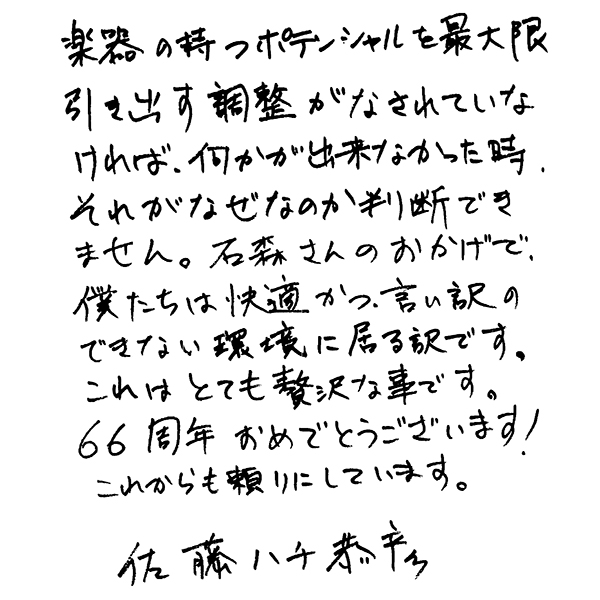 楽器の持つポテンシャルを最大限
引き出す調整がなされていな
ければ、何かが出来なかった時、
それがなぜなのか判断でき
ません。石森さんのおかげで、
僕たちは快適かつ、言い訳の
できない環境に居る訳です。
これはとても贅沢な事です。
66周年おめでとうございます!
これからも頼りにしています。
佐藤ハチ恭彦